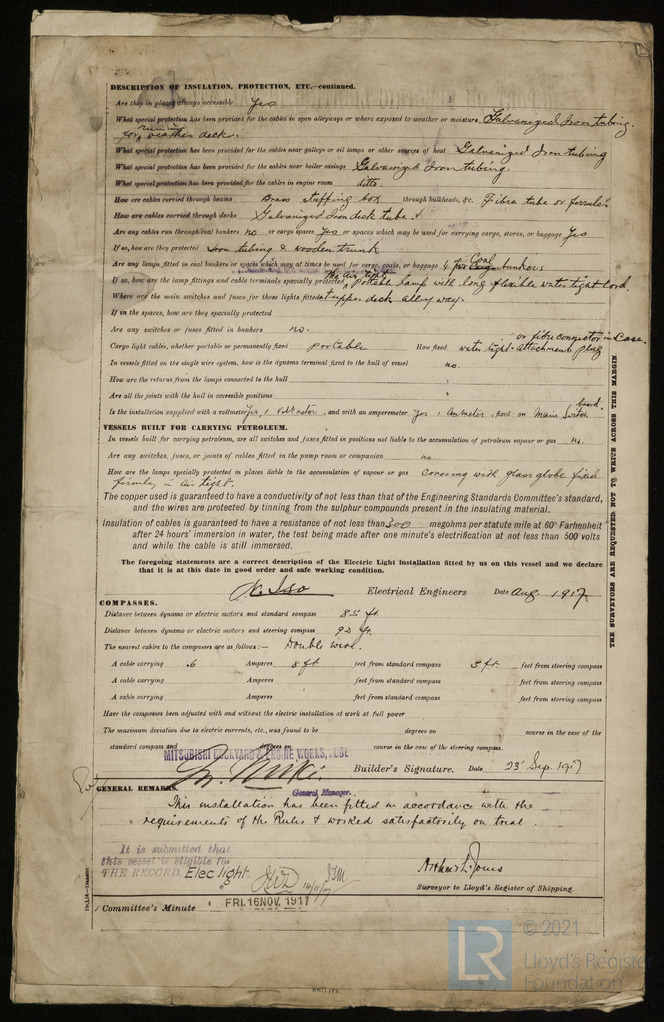 DESCRIPTION OF INSULATION, PROTECTION, ETC.—continued.
Are they in places always accessible Yes
What special protection has been provided for the cables in open alleyways or where exposed to weather or moisture Galvanized Iron tubing.
for weather deck.
What special protection has been provided for the cables near galleys or oil lamps or other sources of heat Galvanized Iron tubing
What special protection has been provided for the cables near boiler casings Galvanized Iron tubing.
What special protection has been provided for the cables in engine room ditto.
How are cables carried through beams Brass stuffing box through bulkheads, &c. Fibre tube or ferrules
How are cables carried through decks Galvanized Iron deck tube
Are any cables run through coal bunkers no or cargo spaces Yes or spaces which may be used for carrying cargo, stores, or baggage Yes
If so, how are they protected Iron tubing & wooden trunk
Are any lamps fitted in coal bunkers or spaces which may at times be used for cargo, coals, or baggage 4 for Coal bunkers
If so, how are the lamp fittings and cable terminals specially protected The air tight portable lamp with long flexible water tight cord.
Where are the main switches and fuses for these lights fitted at upper deck alley way.
If in the spaces, how are they specially protected
Are any switches or fuses fitted in bunkers no.
Cargo light cables, whether portable or permanently fixed portable How fixed water tight attachment plug
or fibre connector in Case.
In vessels fitted on the single wire system, how is the dynamo terminal fixed to the hull of vessel no.
How are the returns from the lamps connected to the hull
Are all the joints with the hull in accessible positions
Is the installation supplied with a voltmeter Yes, 1 Voltmeter, and with an amperemeter Yes 1 Ammeter, fixed on Main Switch board.
VESSELS BUILT FOR CARRYING PETROLEUM.
In vessels built for carrying petroleum, are all switches and fuses fitted in positions not liable to the accumulation of petroleum vapour or gas no.
Are any switches, fuses, or joints of cables fitted in the pump room or companion no.
How are the lamps specially protected in places liable to the accumulation of vapour or gas Covering with glass globe fixed
firmly in air tight.
The copper used is guaranteed to have a conductivity of not less than that of the Engineering Standards Committee's standard,
and the wires are protected by tinning from the sulphur compounds present in the insulating material.
Insulation of cables is guaranteed to have a resistance of not less than 300 megohms per statute mile at 60° Farhenheit
after 24 hours' immersion in water, the test being made after one minute's electrification at not less than 500 volts
and while the cable is still immersed.
The foregoing statements are a correct description of the Electric Light installation fitted by us on this vessel and we declare
that it is at this date in good order and safe working condition.
Electrical Engineers Date Aug 1917
COMPASSES.
Distance between dynamo or electric motors and standard compass ft.
Distance between dynamo or electric motors and steering compass 92 ft.
The nearest cables to the compasses are as follows:— Double wire.
A cable carrying .6 Amperes 8 ft feet from standard compass 5 ft feet from steering compass
A cable carrying Amperes feet from standard compass feet from steering compass
A cable carrying Amperes feet from standard compass feet from steering compass
Have the compasses been adjusted with and without the electric installation at work at full power
The maximum deviation due to electric currents, etc., was found to be degrees on course in the case of the
standard compass and degrees on course in the case of the steering compass.
MITSUBISHI DOCKYARD & ENGINE WORKS, KOBE
Builder's Signature. Date 25 Sep. 1917
General Manager.
GENERAL REMARKS.
This installation has been fitted in accordance with the
requirements of the Rules & worked satisfactorily on trial.
It is submitted that
this vessel is eligible for
THE RECORD. Elec light.
16/11/17
Arthur L. Jones
Surveyor to Lloyd's Register of Shipping.
Committee's Minute FRI. 16 NOV. 1917
THE SURVEYORS ARE REQUESTED NOT TO WRITE ACROSS THIS MARGIN
LR
© 2021
Lloyd's Register
Foundation